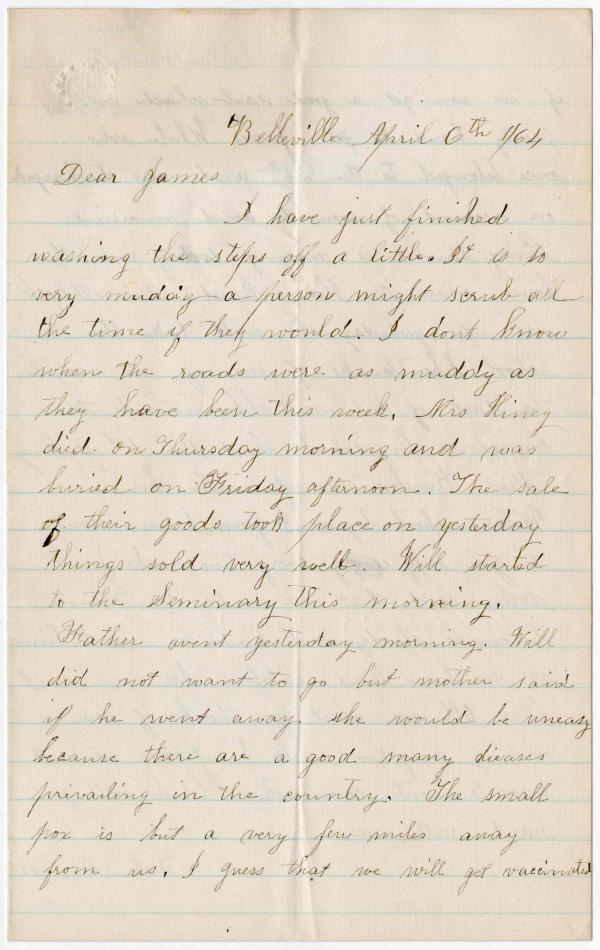 Belleville April 6th /64
Dear James
I have just finished
washing the steps off a little. It is so
very muddy a person might scrub all
the time if they would. I dont know
when the roads were as muddy as
they have been this week. Mrs Hiney
died on Thursday morning and was
buried on Friday afternoon. The sale
of their goods took place on yesterday
things sold very well. Will started
to the Seminary this morning.
Father went yesterday morning. Will
did not want to go but mother said
if he went away she would be uneasy
because there are a good many dieases
privailing in the country. The small
pox is but a very few miles away
from us. I guess that we will get vaccinated